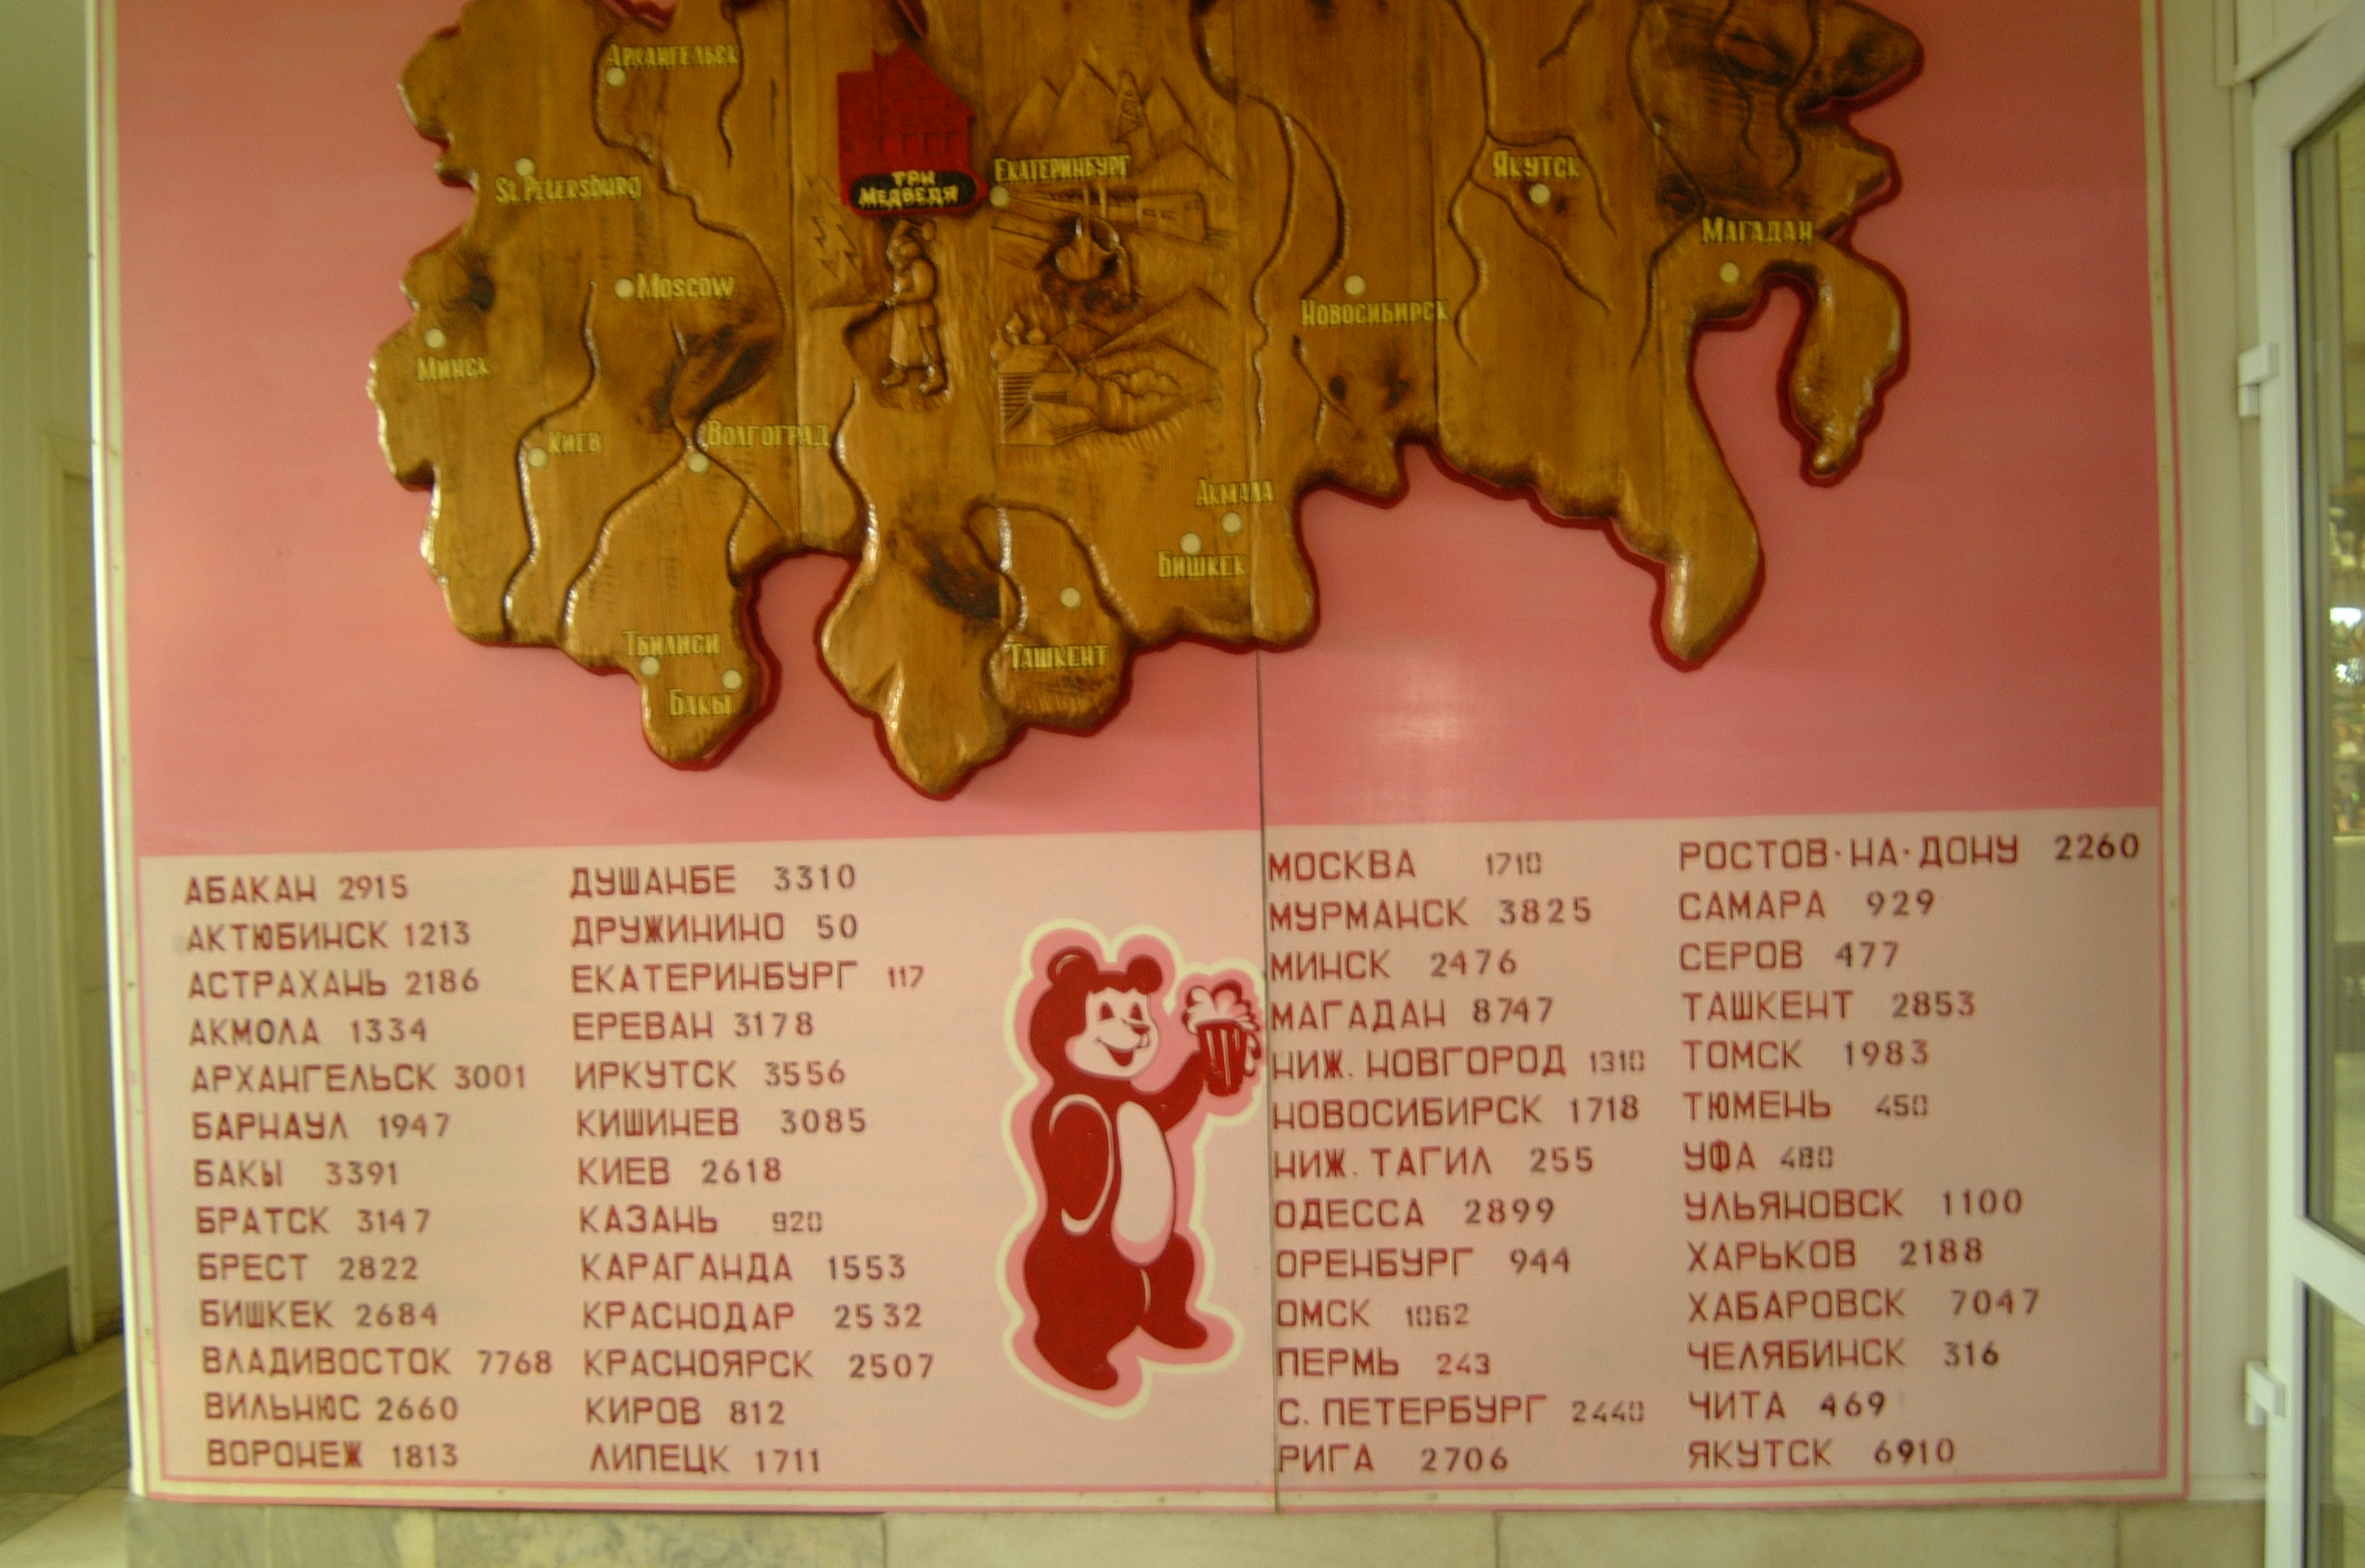 АРХАНГЕЛЬСК
ТРИ
МЕДВЕДЯ
ЕКАТЕРИНБУРГ
ЯКУТСК
St. Petersburg
МАГАДАН
Moscow
НОВОСИБИРСК
МИНСК
КИЕВ
ВОЛГОГРАД
АКМАЛА
БИШКЕК
ТБИЛИСИ
ТАШКЕНТ
БАКЫ
АБАКАН 2915
АКТЮБИНСК 1213
АСТРАХАНЬ 2186
АКМОЛА 1334
АРХАНГЕЛЬСК 3001
БАРНАУЛ 1947
БАКЫ 3391
БРАТСК 3147
БРЕСТ 2822
БИШКЕК 2684
ВЛАДИВОСТОК 7768
ВИЛЬНЮС 2660
ВОРОНЕЖ 1813
ДУШАНБЕ 3310
ДРУЖИНИНО 50
ЕКАТЕРИНБУРГ 117
ЕРЕВАН 3178
ИРКУТСК 3556
КИШИНЕВ 3085
КИЕВ 2618
КАЗАНЬ 920
КАРАГАНДА 1553
КРАСНОДАР 2532
КРАСНОЯРСК 2507
КИРОВ 812
ЛИПЕЦК 1711
МОСКВА 1710
МУРМАНСК 3825
МИНСК 2476
МАГАДАН 8747
НИЖ. НОВГОРОД 1310
НОВОСИБИРСК 1718
НИЖ. ТАГИЛ 255
ОДЕССА 2899
ОРЕНБУРГ 944
ОМСК 1062
ПЕРМЬ 243
С. ПЕТЕРБУРГ 2440
РИГА 2706
РОСТОВ·НА·ДОНУ 2260
САМАРА 929
СЕРОВ 477
ТАШКЕНТ 2853
ТОМСК 1983
ТЮМЕНЬ 450
УФА 480
УЛЬЯНОВСК 1100
ХАРЬКОВ 2188
ХАБАРОВСК 7047
ЧЕЛЯБИНСК 316
ЧИТА 469
ЯКУТСК 6910